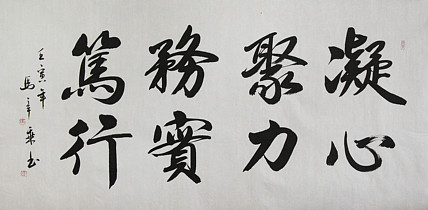 凝心
聚力
務實
篤行
壬寅年
馬 书